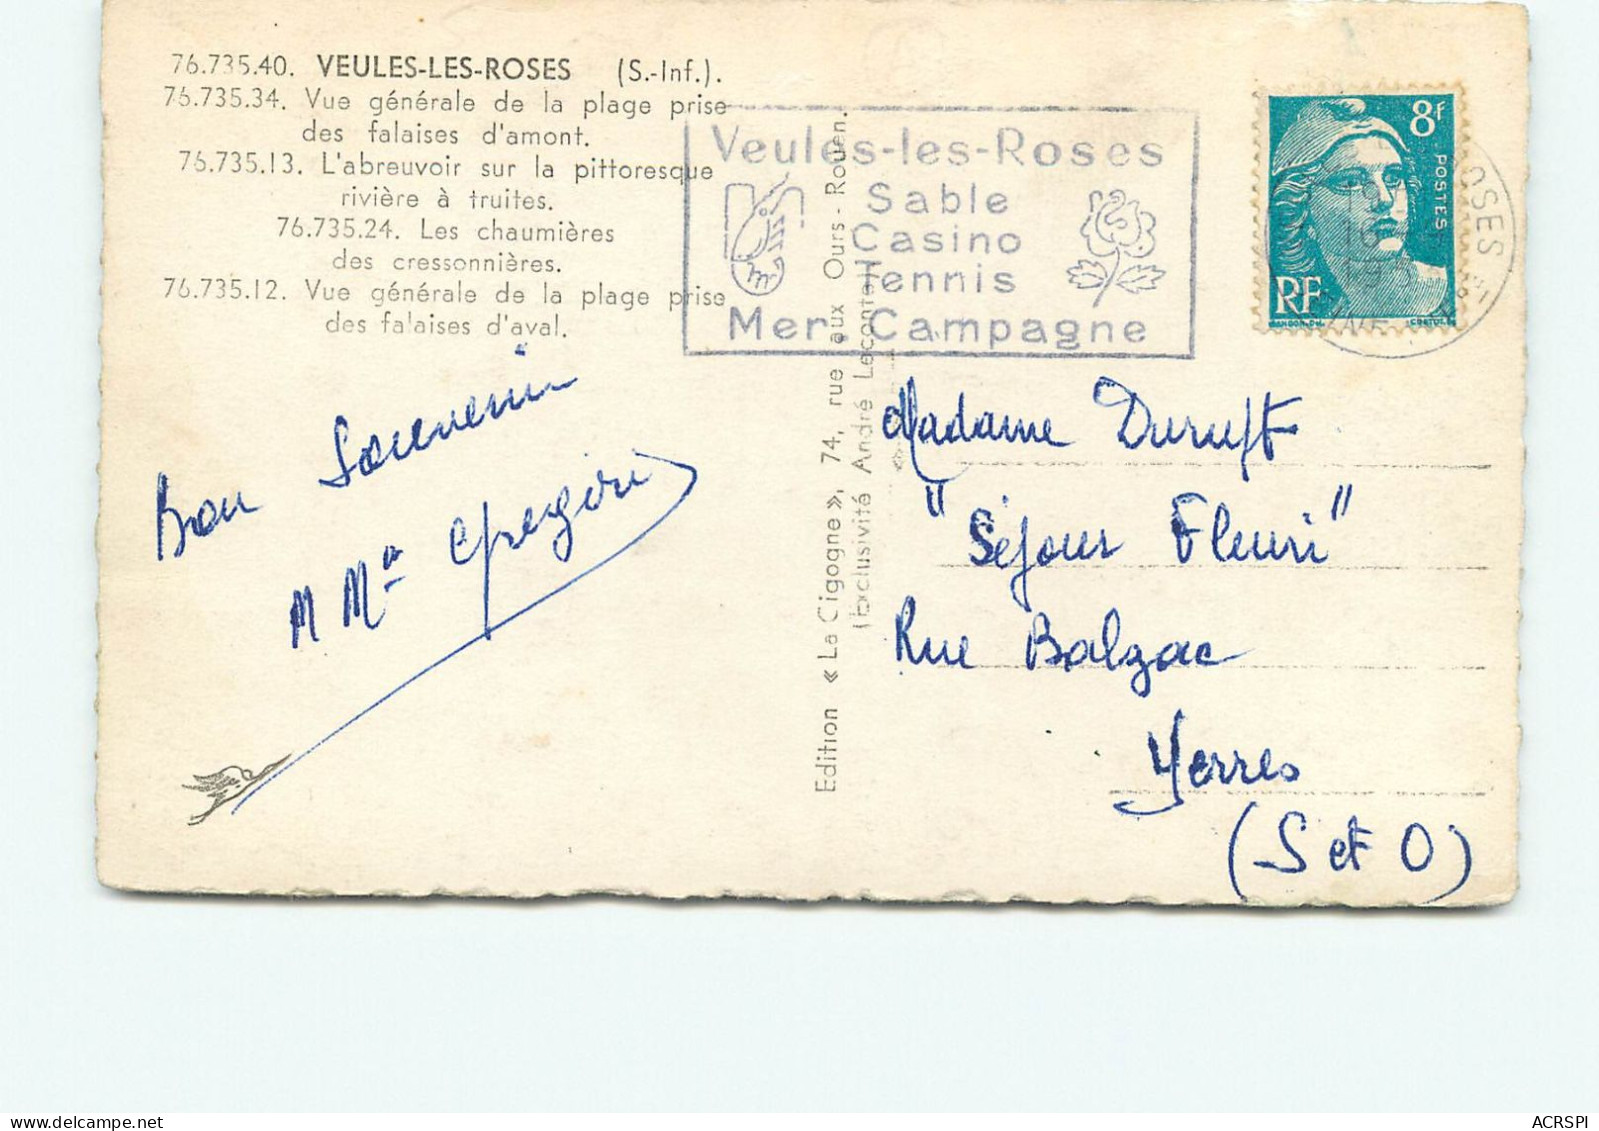 76.735.40. VEULES-LES-ROSES (S.-Inf.).
76.735.34. Vue générale de la plage prise
des falaises d'amont.
76.735.13. L'abreuvoir sur la pittoresque
rivière à truites.
76.735.24. Les chaumières
des cressonnières.
76.735.12. Vue générale de la plage prise
des falaises d'aval.
Bon Souvenir
M Me Gregori
Edition « La Cigogne », 74, rue aux Ours - Rouen.
(Exclusivité André Leconte)
Veules-les-Roses
Sable
Casino
Tennis
Mer Campagne
8f
POSTES
RF
OSES
Madame Duruft
"Séjour Fleuri"
Rue Balzac
Yerres
(S et O)
ACRSPI